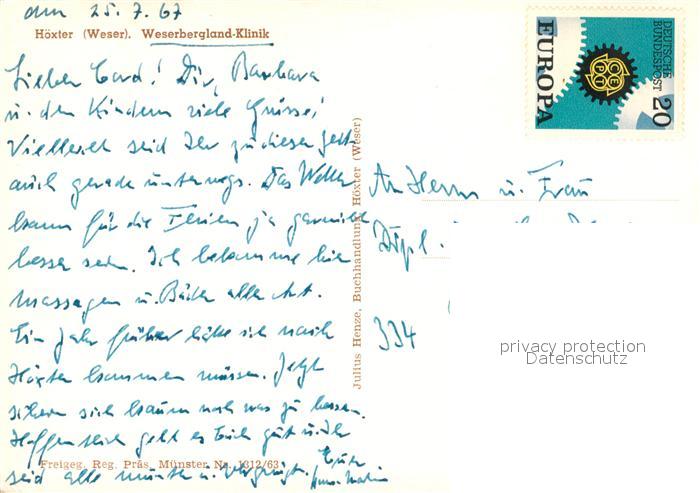 am 25.7.67
Höxter (Weser). Weserbergland-Klinik
Lieber Cord! Dir, Barbara
u. den Kindern viele Grüsse!
Vielleicht seid Ihr zu dieser Zeit
auch gerade unterwegs. Das Wetter
kann für die Ferien ja garnicht
besser sein. Ich bekomme hier
Massagen u. Bäder aller Art.
Ein Jahr früher hätte ich nach
Höxter kommen müssen. Jetzt
wird sich kaum noch was zu bessern.
Hoffentlich geht es Euch gut u. Ihr
seid alle munter u. vergnügt. Euer
Freigeg. Reg. Präs. Münster Nr. 1312/63
Julius Henze, Buchhandlung, Höxter (Weser)
DEUTSCHE
BUNDESPOST
20
EUROPA
CEPT
An Herrn u. Frau
Dipl.
334
privacy protection
Datenschutz